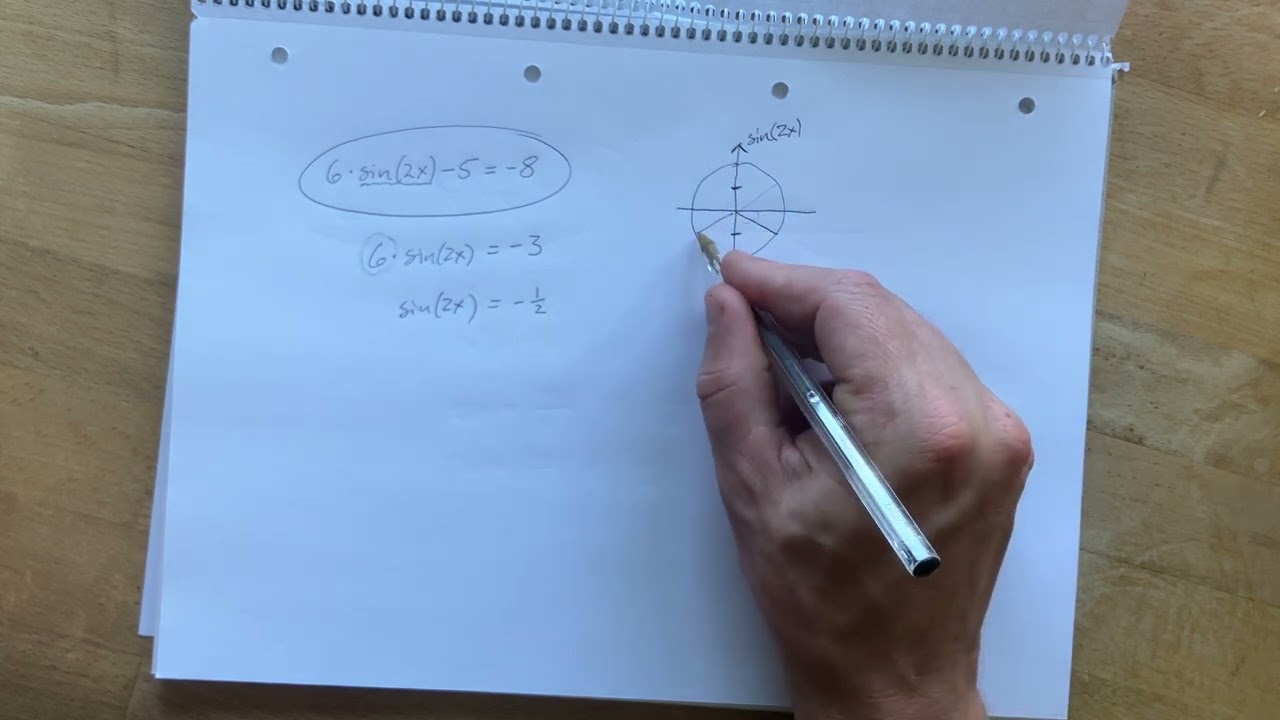 6·sin(2x)-5=-8
6·sin(2x)=-3
sin(2x)=-1/2
sin(2x)